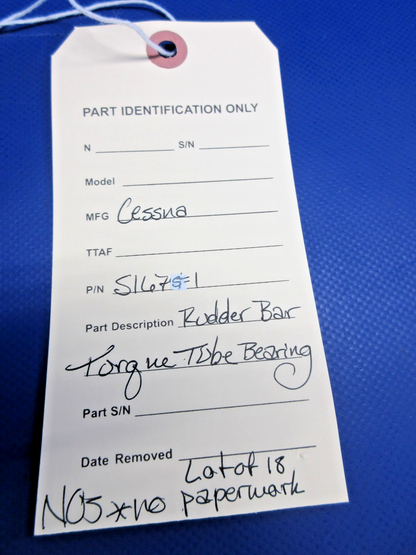 PART IDENTIFICATION ONLY
N S/N
Model
MFG Cessna
TTAF
P/N S1675-1
Part Description Rudder Bar
Torque Tube Bearing
Part S/N
Date Removed Lot of 18
NOS *no paperwork